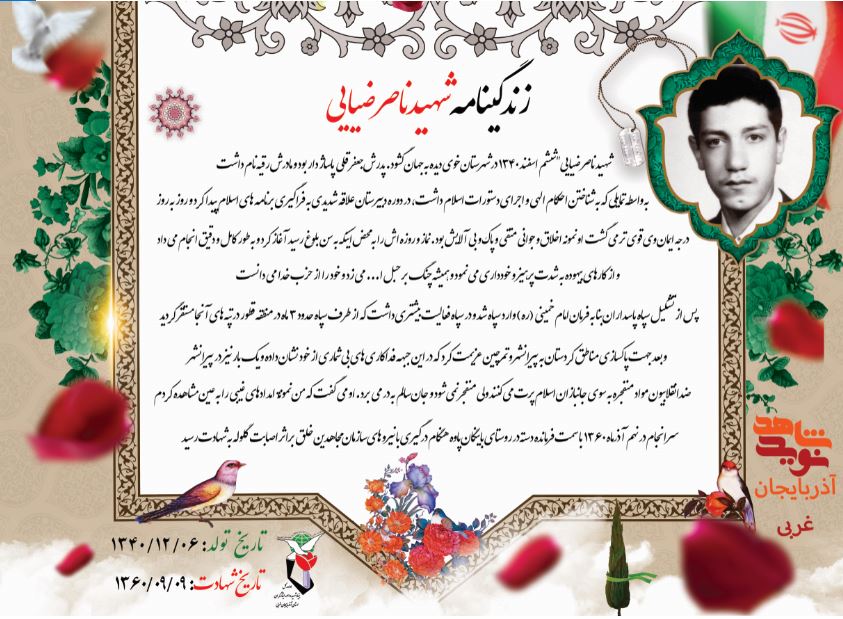 زندگینامه شهید ناصر ضیایی
شهید ناصر ضیایی "ششم اسفند ۱۳۴۰ در شهرستان خوی دیده به جهان گشود. پدرش جعفرقلی پاساژدار بود و مادرش رقیه نام داشت
به واسطه تمایلی که به شناختن احکام الهی و اجرای دستورات اسلام داشت، در دوره دبیرستان علاقه شدیدی به فراگیری برنامه های اسلام پیدا کرد و روز به روز
درجه ایمان وی قوی تر می گشت او نمونه اخلاق و جوانی متقی و پاک و بی آلایش بود. نماز و روزه اش را به محض اینکه به سن بلوغ رسید آغاز کرد و به طور کامل و دقیق انجام می داد
و از کارهای بیهوده به شدت پرهیز و خودداری می نمود و همیشه چنگ بر حبل ا... می زد و خود را از حزب خدا می دانست
پس از تشکیل سپاه پاسداران بنا به فرمان امام خمینی (ره) وارد سپاه شد و در سپاه فعالیت بیشتری داشت که از طرف سپاه حدود ۳ ماه در منطقه قطور در تپه های آنجا مستقر گردید
و بعد جهت پاکسازی مناطق کردستان به پیرانشهر و تمرچین عزیمت کرد که در این جبهه فداکاری های بی شماری از خود نشان داده و یک بار نیز در پیرانشهر
ضد انقلابیون مواد منفجره به سوی جانبازان اسلام پرت می کنند ولی منفجر نمی شود و جان سالم به در می برد. او می گفت که من نمونۀ امدادهای غیبی را به عین مشاهده کردم
سرانجام در نهم آذرماه ۱۳۶۰ با سمت فرمانده دسته در روستای بایگان پاوه هنگام درگیری با نیروهای سازمان مجاهدین خلق بر اثر اصابت گلوله به شهادت رسید
نوید شاهد
آذربایجان
غربی
تاریخ تولد: ۱۳۴۰/۱۲/۰۶
تاریخ شهادت: ۱۳۶۰/۰۹/۰۹